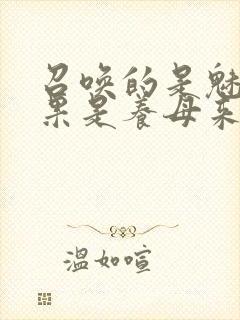 召唤的是魅
果是养母来
温如喧